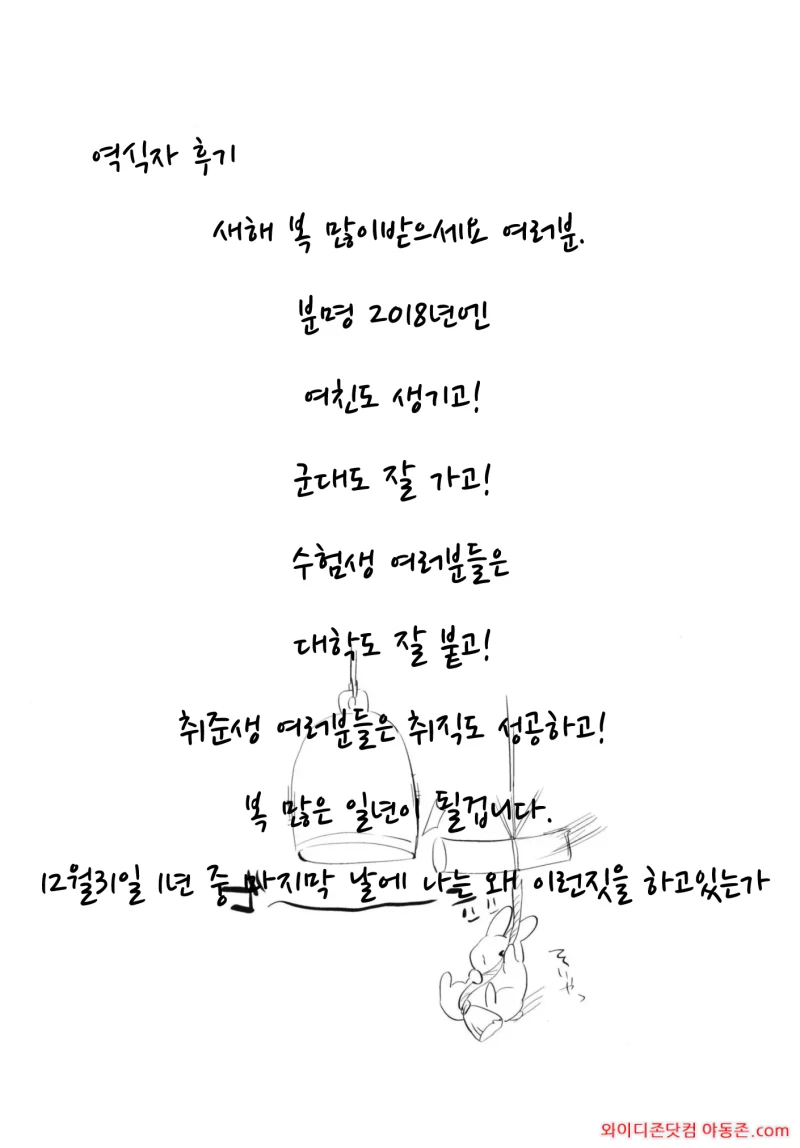 역식자 후기
새해 복 많이받으세요 여러분.
분명 2018년엔
여친도 생기고!
군대도 잘 가고!
수험생 여러분들은
대학도 잘 붙고!
취준생 여러분들은 취직도 성공하고!
복 많은 일년이 될겁니다.
12월31일 1년 중 마지막 날에 나는 왜 이런짓을 하고있는가
そいやっ
와이디존닷컴 야동존.com